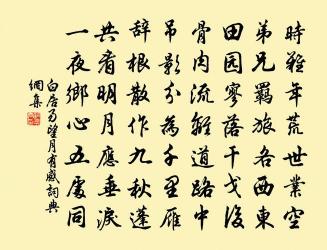 時難年荒世業空
弟兄羈旅各西東
田园寥落干戈後
骨肉流離道路中
吊影分為千里雁
辞根散作九秋蓬
共看明月應垂淚
一夜鄉心五處同
白居易望月有感詞典
網集